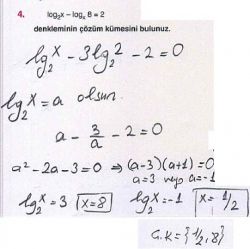 4. log₂x – logₓ 8 = 2
denkleminin çözüm kümesini bulunuz.
lg₂x - 3lg₂2 - 2 = 0
lg₂x = a olsun.
a - 3/a - 2 = 0
a² - 2a - 3 = 0 ⇒ (a-3)(a+1) = 0
a = 3 veya a = -1
lg₂x = 3 x = 8 lg₂x = -1 x = 1/2
Ç.K = {1/2, 8}